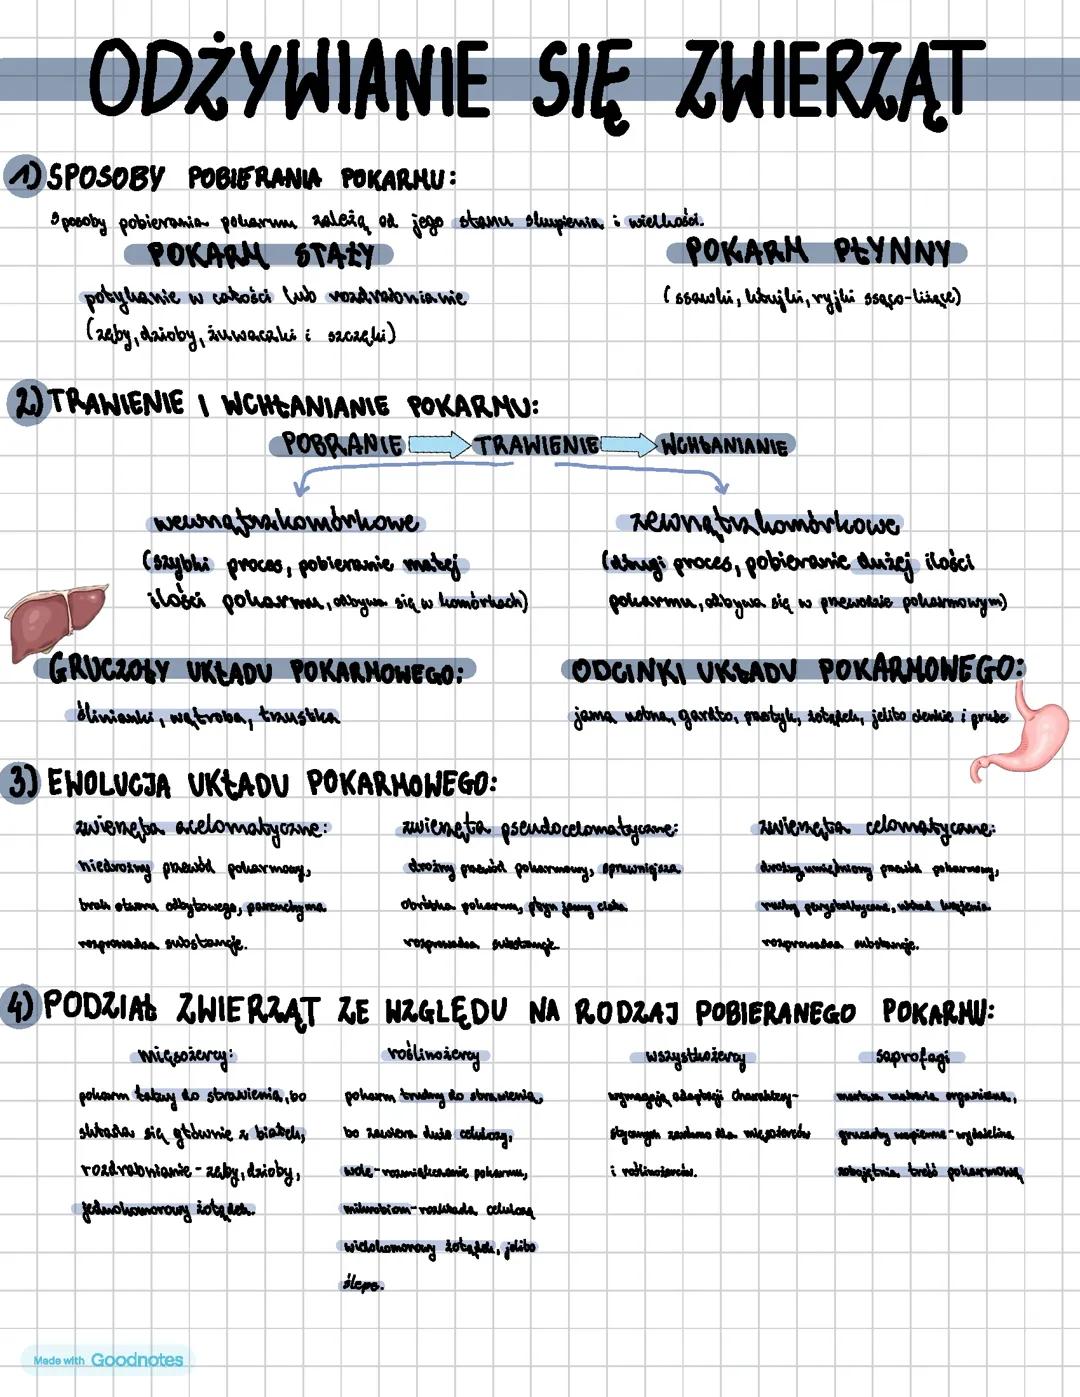 ODŻYWIANIE SIĘ ZWIERZĄT
1) SPOSOBY POBIERANIA POKARMU:
Sposoby pobierania pokarmu zależą od jego stanu skupienia i wielkości.
POKARM STAŁY
POKARM PŁYNNY
połykanie w całości lub rozdrabnianie
(zęby, dzioby, żuwaczki i szczęki)
(ssawki, kłujki, ryjki ssąco-liżące)
2) TRAWIENIE I WCHŁANIANIE POKARMU:
POBRANIE TRAWIENIE WCHŁANIANIE
wewnątrzkomórkowe
(szybki proces, pobieranie małej
ilości pokarmu, odbywa się w komórkach)
zewnątrzkomórkowe
(długi proces, pobieranie dużej ilości
pokarmu, odbywa się w przewodzie pokarmowym)
GRUCZOŁY UKŁADU POKARMOWEGO:
ślinianki, wątroba, trzustka
ODCINKI UKŁADU POKARMOWEGO:
jama ustna, gardło, przełyk, żołądek, jelito cienkie i grube
3) EWOLUCJA UKŁADU POKARMOWEGO:
zwierzęta acelomatyczne:
niedrożny przewód pokarmowy,
brak otworu odbytowego, parenchyma
rozprowadza substancje.
zwierzęta pseudocelomatyczne:
drożny przewód pokarmowy, sprawniejsza
obróbka pokarmu, płyn jamy ciała
rozprowadza substancje.
zwierzęta celomatyczne:
drożny, umięśniony przewód pokarmowy,
ruchy perystaltyczne, układ krążenia
rozprowadza substancje.
4) PODZIAŁ ZWIERZĄT ZE WZGLĘDU NA RODZAJ POBIERANEGO POKARMU:
mięsożercy:
pokarm łatwy do strawienia, bo
składa się głównie z białek,
rozdrabnianie - zęby, dzioby,
jednokomorowy żołądek.
roślinożercy
pokarm trudny do strawienia,
bo zawiera dużo celulozy,
wole - rozmiękczanie pokarmu,
mikrobiom - rozkłada celulozę
wielokomorowy żołądek, jelito
ślepe.
wszystkożercy
wymagają adaptacji charaktery-
stycznych zarówno dla mięsożerców
i roślinożerców.
saprofagi
martwa materia organiczna,
gruczoły wapienne - wydzielina
zobojętnia treść pokarmową
Made with Goodnotes